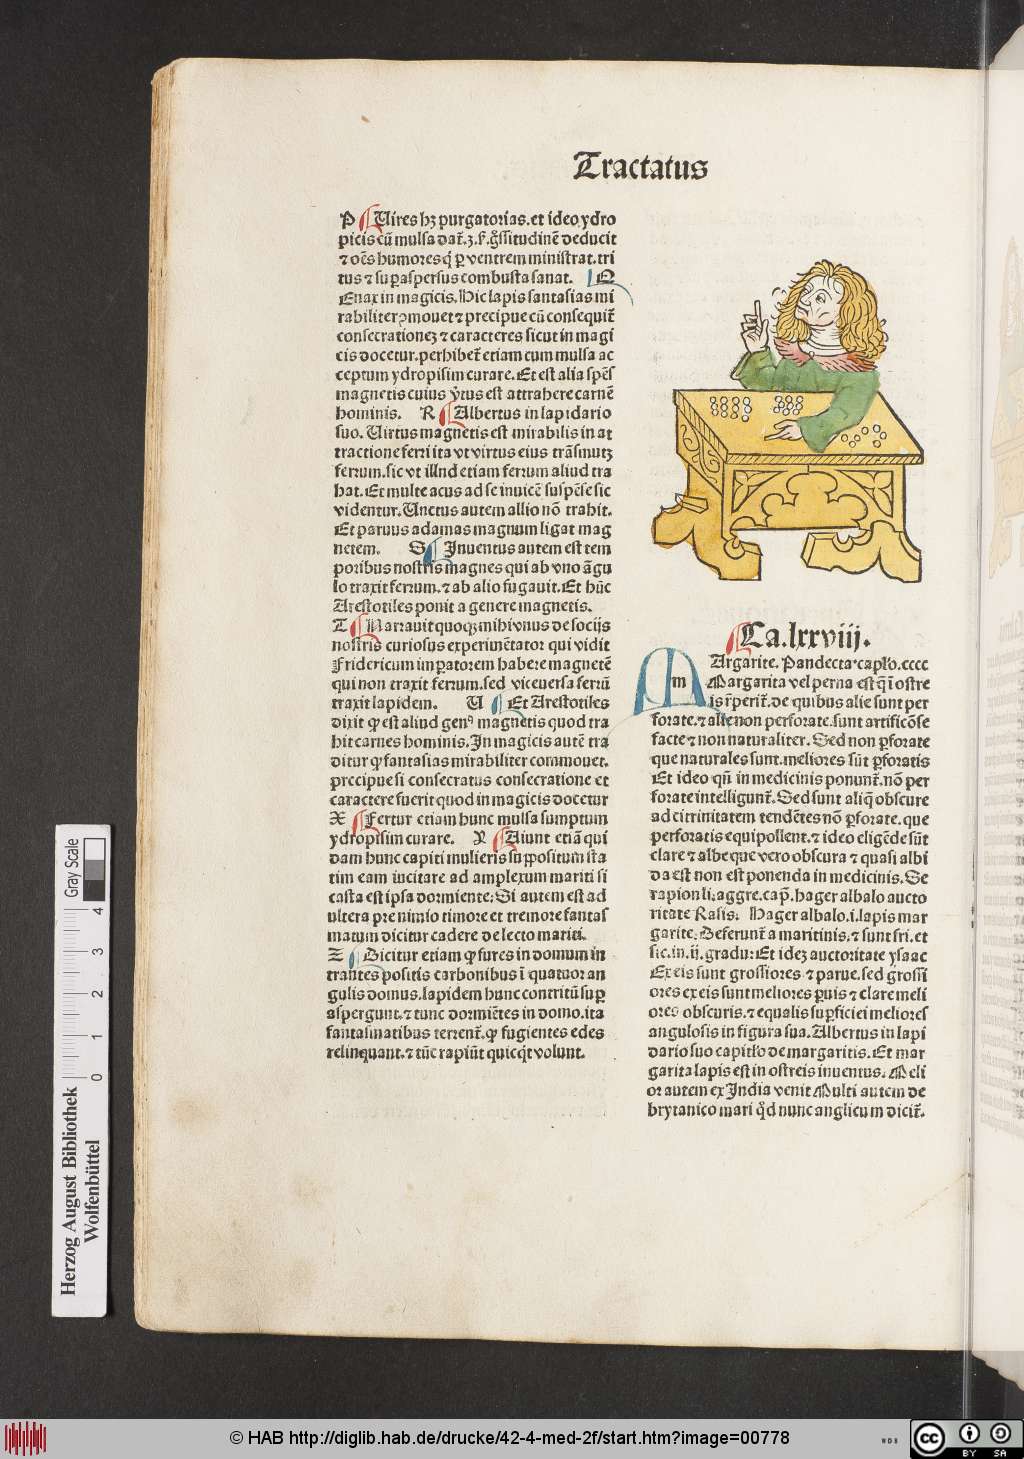 Tractatus
P Uires hꝫ purgatorias.et ideo ydro
picis cū mulsa dat̄.ꝫ.f̄.g̊ssitudinē deducit
⁊ oēs humores q̄ ꝑ ventrem ministrat.tri
tus ⁊ suꝑaspersus combusta sanat. Q
Enax in magicis.Hic lapis fantasias mi
rabiliter ꝓmouet ⁊ precipue cū consequit̄
consecrationeꝫ ⁊ caracteres sicut in magi
cis docetur.perhibet̄ etiam cum mulsa ac
ceptum ydropisim curare.Et est alia spēs
magnetis cuius v̓tus est attrahere carnē
hominis. R Albertus in lapidario
suo.Uirtus magnetis est mirabilis in at
tractione ferri ita vt virtus eius trāsmutꝫ
ferrum.sic vt illnd etiam ferrum aliud tra
hat.Et multe acus ad se inuicē suspēse sic
videntur.Unctus autem allio nō trahit.
Et paruus adamas magnum ligat mag
netem. S Inuentus autem est tem
poribus nostris magnes qui ab vno āgu
lo traxit ferrum.⁊ ab alio fugauit.Et hūc
Arestotiles ponit a genere magnetis.
T Narrauit quoqꝫ mihi vnus de socijs
nostris curiosus experimētator qui vidit
Fridericum imꝑatorem habere magnetē
qui non traxit ferrum.sed viceuersa ferrū
traxit lapidem. U Et Arestotiles
dixit ꝙ est aliud genꝰ magnetis quod tra
hit carnes hominis.In magicis autē tra
ditur ꝙ fantasias mirabiliter commouet.
precipue si consecratus consecratione et
caractere fuerit quod in magicis docetur
X Fertur etiam hunc mulsa sumptum
ydropisim curare. Y Aiunt etiā qui
dam hunc capiti mulieris suppositum sta
tim eam iucitare ad amplexum mariti si
casta est ipsa dormiente:Si autem est ad
ultera pre nimio timore et tremore fantas
matum dicitur cadere de lecto mariti.
Z Dicitur etiam ꝙ fures in domum in
trantes positis carbonibus ī quatuor an
gulis domus.lapidem hunc contritū suꝑ
aspergunt.⁊ tunc dormiētes in domo.ita
fantasmatibus terrent̄.ꝙ fugientes edes
relinquant.⁊ tūc rapiūt quicq̄t volunt.
Ca.lxxviij.
m Argarite.Pandecta.capl̓o.cccc
Margarita vel perna est q̄ ī ostre
is r̄perit̄.de quibus alie sunt per
forate.⁊ alie non perforate.sunt artificōse
facte ⁊ non naturaliter.Sed non ꝑforate
que naturales sunt.meliores sūt ꝑforatis
Et ideo qn̄ in medicinis ponunt̄.nō per
forate intelligunt̄.Sed sunt aliq̄ obscure
ad citrinitatem tendētes nō ꝑforate.que
perforatis equipollent.⁊ ideo eligēde sūt
clare ⁊ albe que vero obscura ⁊ quasi albi
da est non est ponenda in medicinis.Se
rapion li.aggre.cap̄.hager albalo aucto
ritate Rasis. Hager albalo.i.lapis mar
garite.Deferunt̄ a maritinis.⁊ sunt fri.et
sic.in.ij.gradu:Et ideꝫ auctoritate ysaac
Ex eis sunt grossiores ⁊ parue.sed grossi
ores ex eis sunt meliores ꝑuis ⁊ clare meli
ores obscuris.⁊ equalis suꝑficiei meliores
angulosis in figura sua.Albertus in lapi
dario suo capitl̓o de margaritis.Et mar
garita lapis est in ostreis inuentus.Meli
or autem ex India venit Multi autem de
brytanico mari q̊d nunc anglicum dicit̄.
Herzog August Bibliothek
Wolfenbüttel
0 1 2 3 4
Gray Scale
© HAB http://diglib.hab.de/drucke/42-4-med-2f/start.htm?image=00778
WDB
cc BY SA